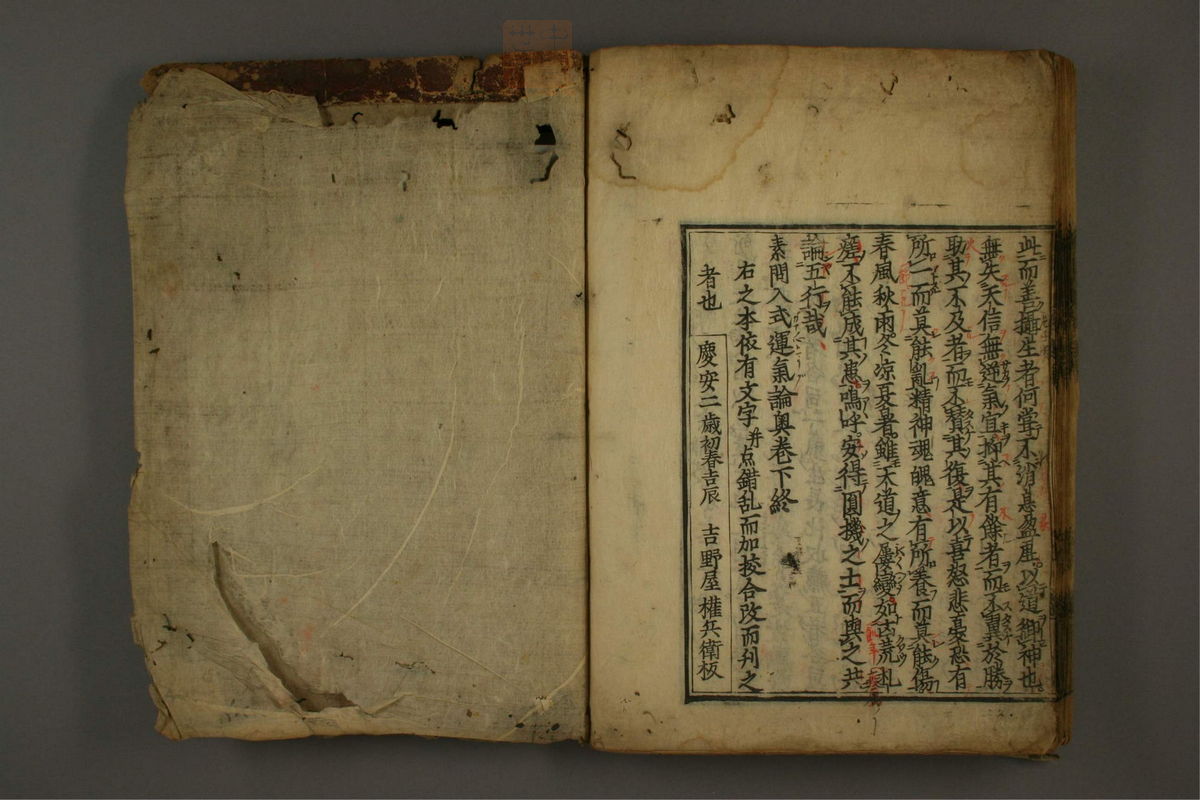 此而善攝生者何嘗不消息盈虛以道御神也
無失天信無逆氣宜抑其有餘者而不翼於勝
助其不及者而不賛其復是以喜怒悲憂恐有
所一而莫能亂精神魂魄意有所養而莫能傷
春風秋雨冬凉夏暑雖天道之屢變如凶荒札
瘥不能成其患嗚呼安得圓機之士而與之共
論五行哉
素問入式運氣論奥巻下終
右之本依有文字并点錯乱而加挍合改而刋之
者也 慶安二歳初春吉辰 吉野屋權兵衛板